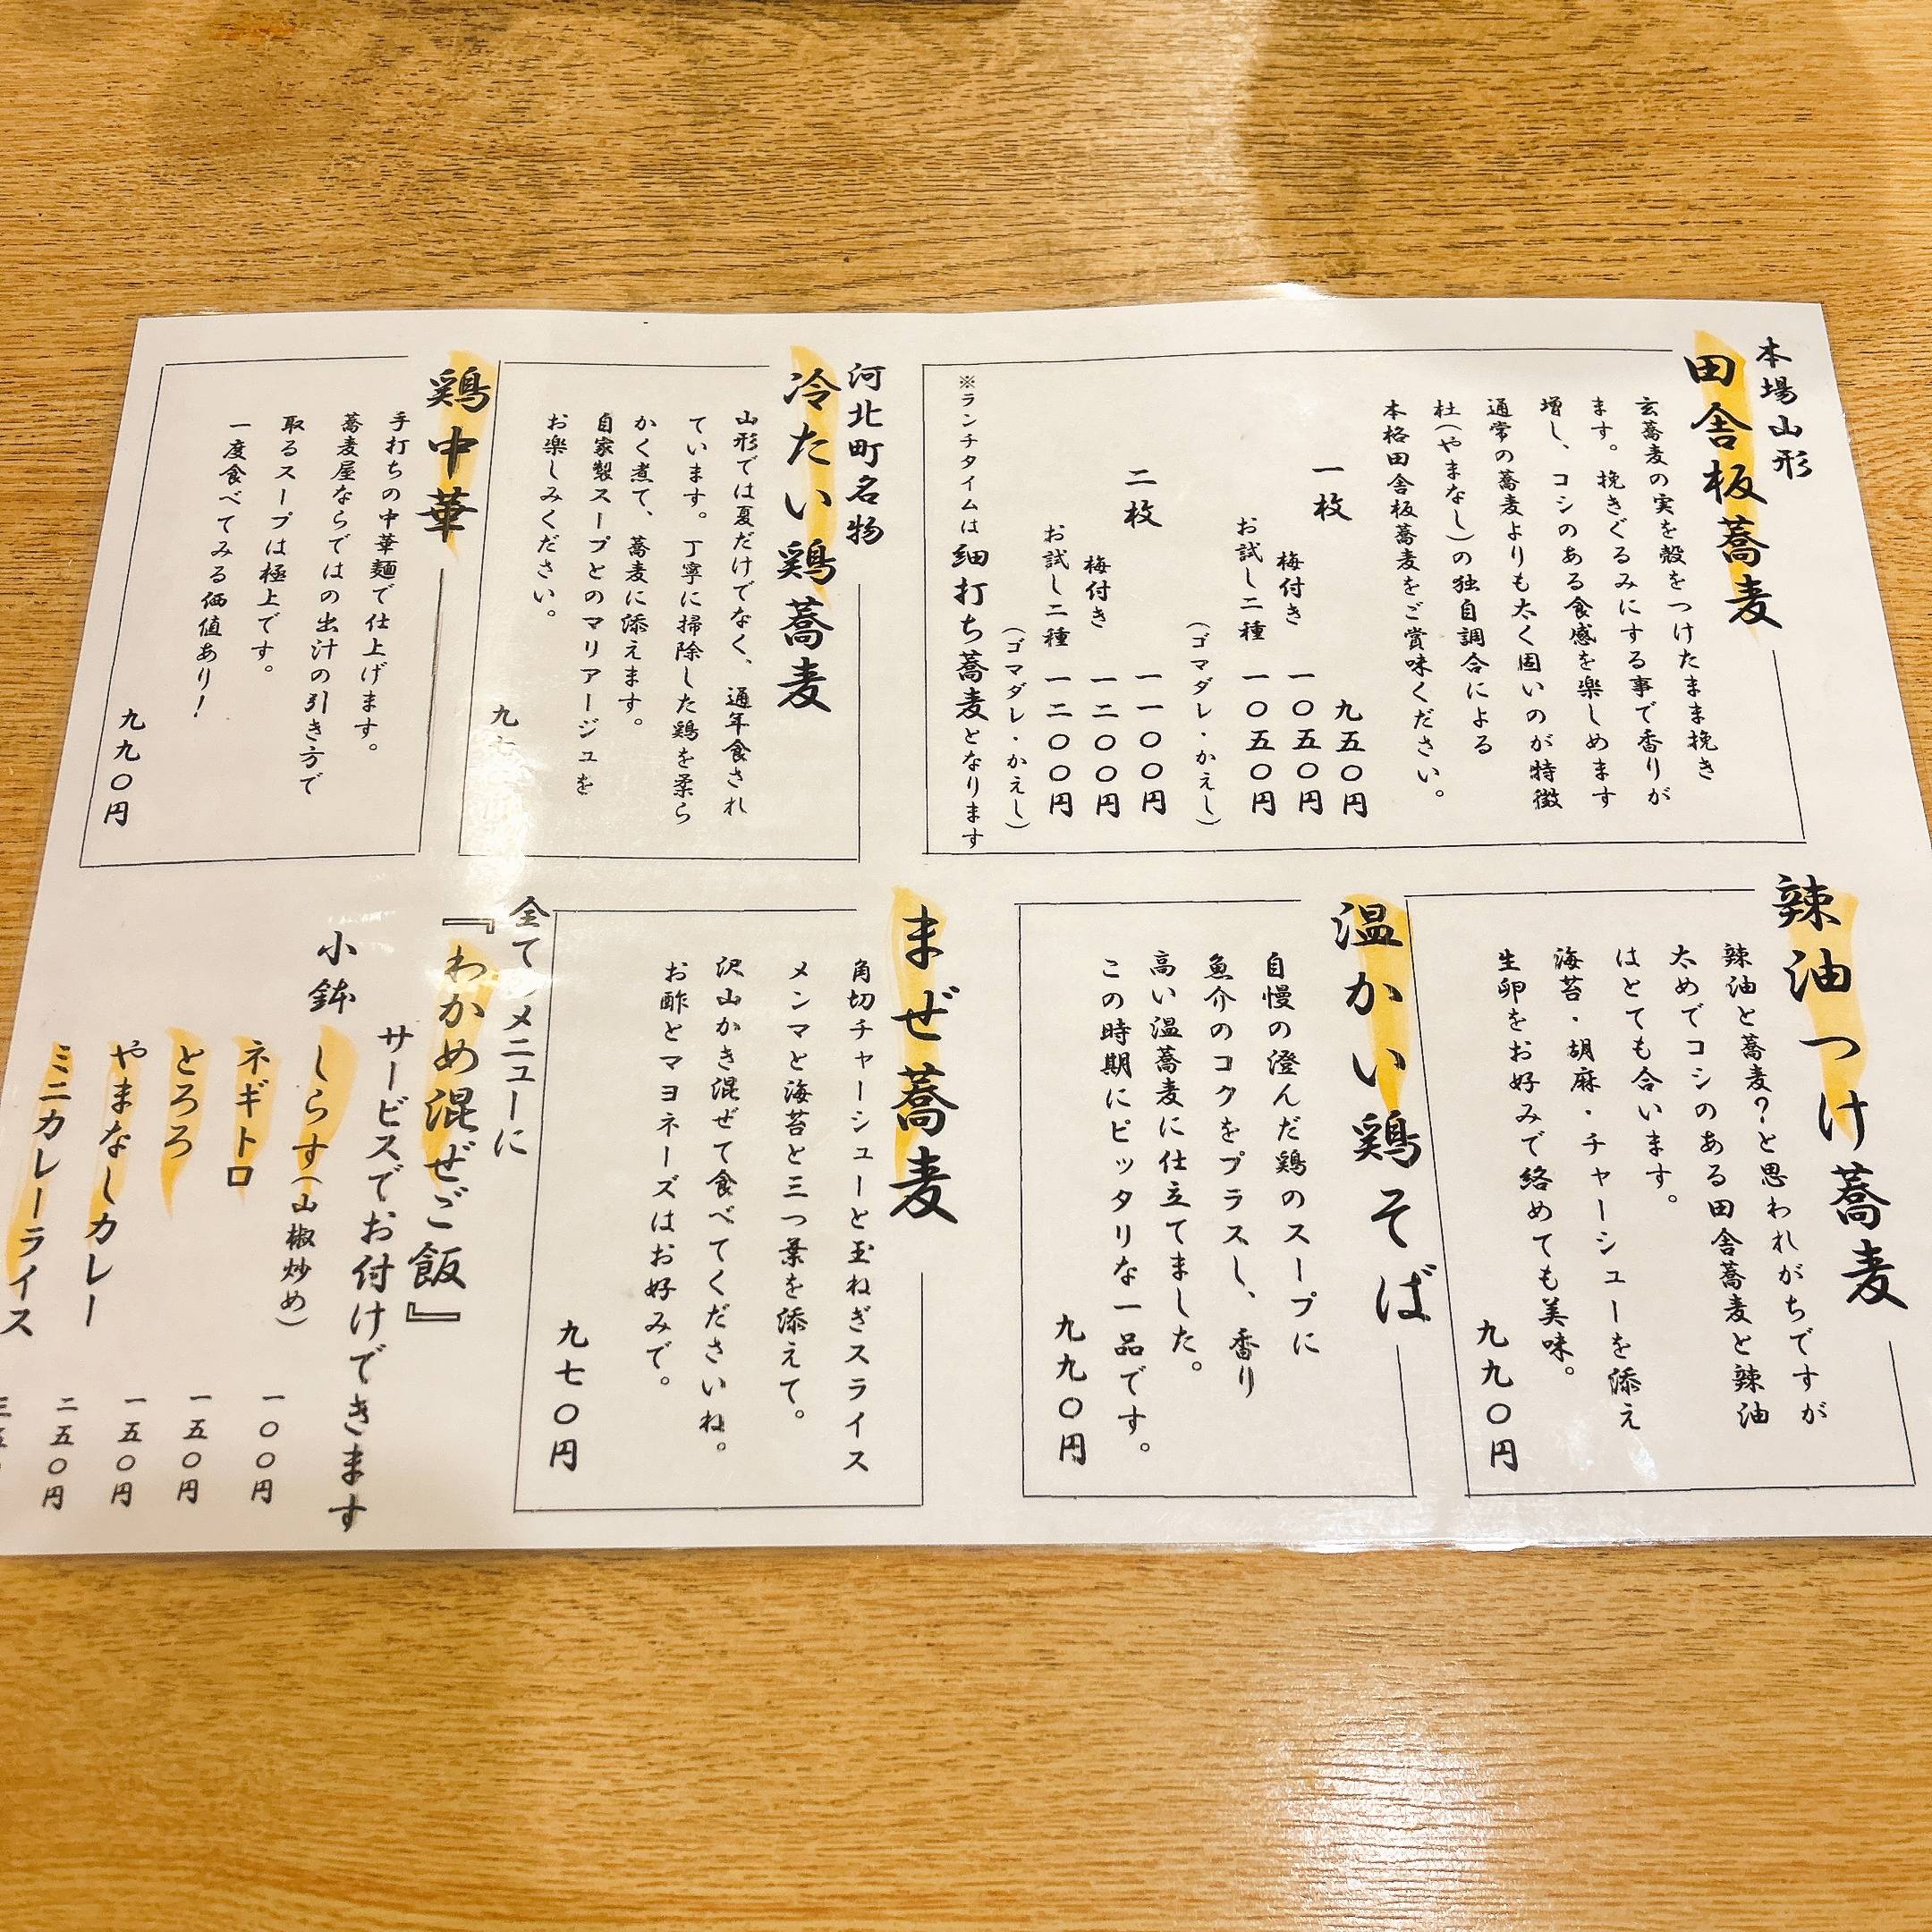 本場山形
田舎板蕎麦
玄蕎麦の実を殻をつけたまま挽き
ます。挽きぐるみにする事で香りが
増し、コシのある食感を楽しめます
通常の蕎麦よりも太く固いのが特徴
杜(やまなし)の独自調合による
本格田舎板蕎麦をご賞味ください。
一枚 九五〇円
梅付き 一〇五〇円
お試し二種 一〇五〇円
(ゴマダレ・かえし)
二枚 一一〇〇円
梅付き 一二〇〇円
お試し二種 一二〇〇円
(ゴマダレ・かえし)
※ランチタイムは細打ち蕎麦となります
河北町名物
冷たい鶏蕎麦
山形では夏だけでなく、通年食され
ています。丁寧に掃除した鶏を柔ら
かく煮て、蕎麦に添えます。
自家製スープとのマリアージュを
お楽しみください。
九
鶏中華
手打ちの中華麺で仕上げます。
蕎麦屋ならではの出汁の引き方で
取るスープは極上です。
一度食べてみる価値あり!
九九〇円
辣油つけ蕎麦
辣油と蕎麦?と思われがちですが
太めでコシのある田舎蕎麦と辣油
はとても合います。
海苔・胡麻・チャーシューを添え
生卵をお好みで絡めても美味。
九九〇円
温かい鶏そば
自慢の澄んだ鶏のスープに
魚介のコクをプラスし、香り
高い温蕎麦に仕立てました。
この時期にピッタリな一品です。
九九〇円
まぜ蕎麦
角切チャーシューと玉ねぎスライス
メンマと海苔と三つ葉を添えて。
沢山かき混ぜて食べてくださいね。
お酢とマヨネーズはお好みで。
九七〇円
全てのメニューに
『わかめ混ぜご飯』
サービスでお付けできます
小鉢
しらす(山椒炒め) 一〇〇円
ネギトロ 一五〇円
とろろ 一五〇円
やまなしカレー 二五〇円
ミニカレーライス